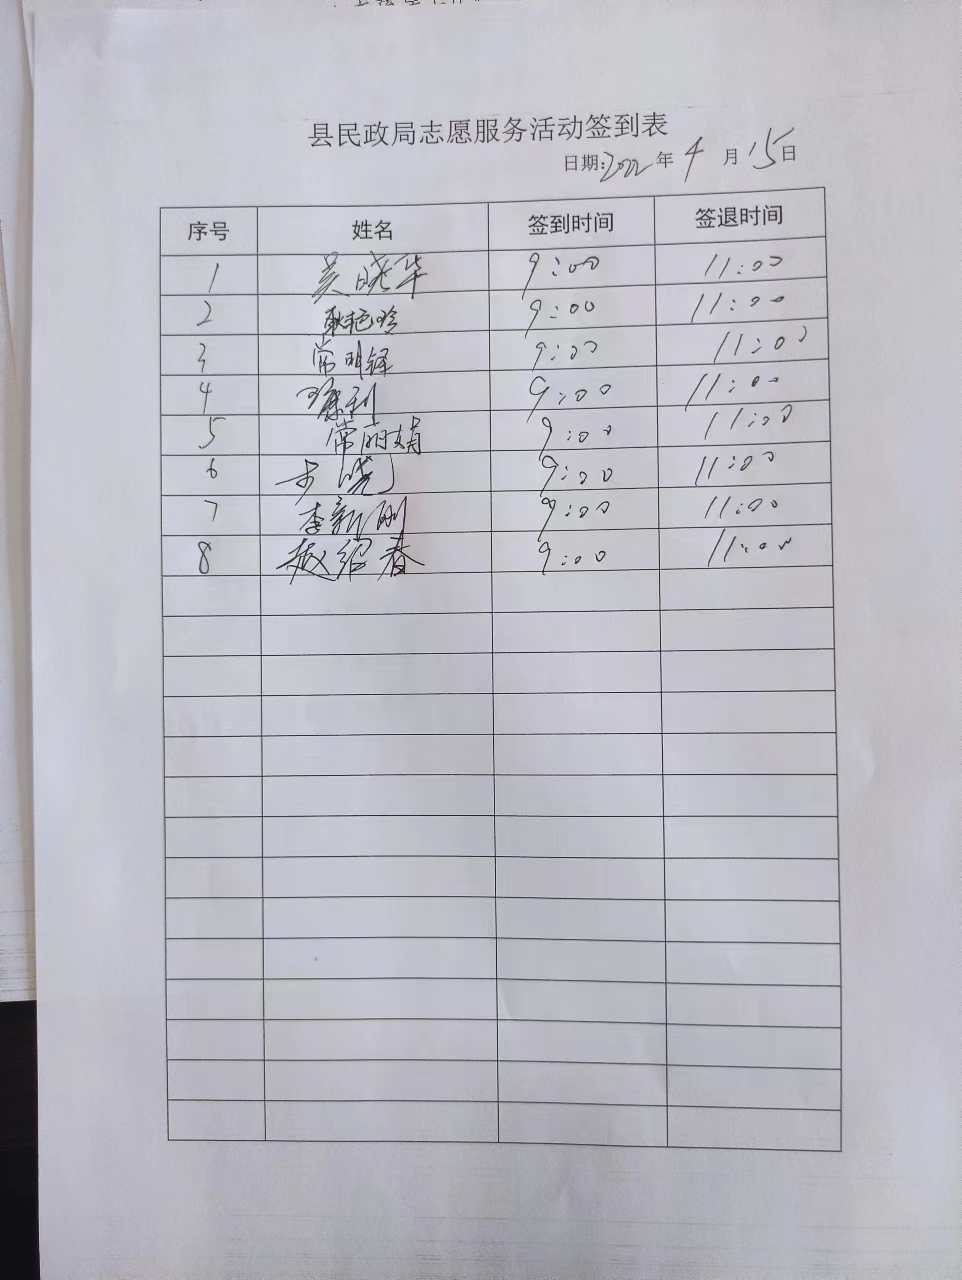 县民政局志愿服务活动签到表
日期:2022年4月15日
序号 姓名 签到时间 签退时间
1 吴晓华 9:00 11:00
2 耿艳玲 9:00 11:00
3 常明铎 9:00 11:00
4 利 9:00 11:00
5 常丽娟 9:00 11:00
6 晓 9:00 11:00
7 李新刚 9:00 11:00
8 赵绍春 9:00 11:00